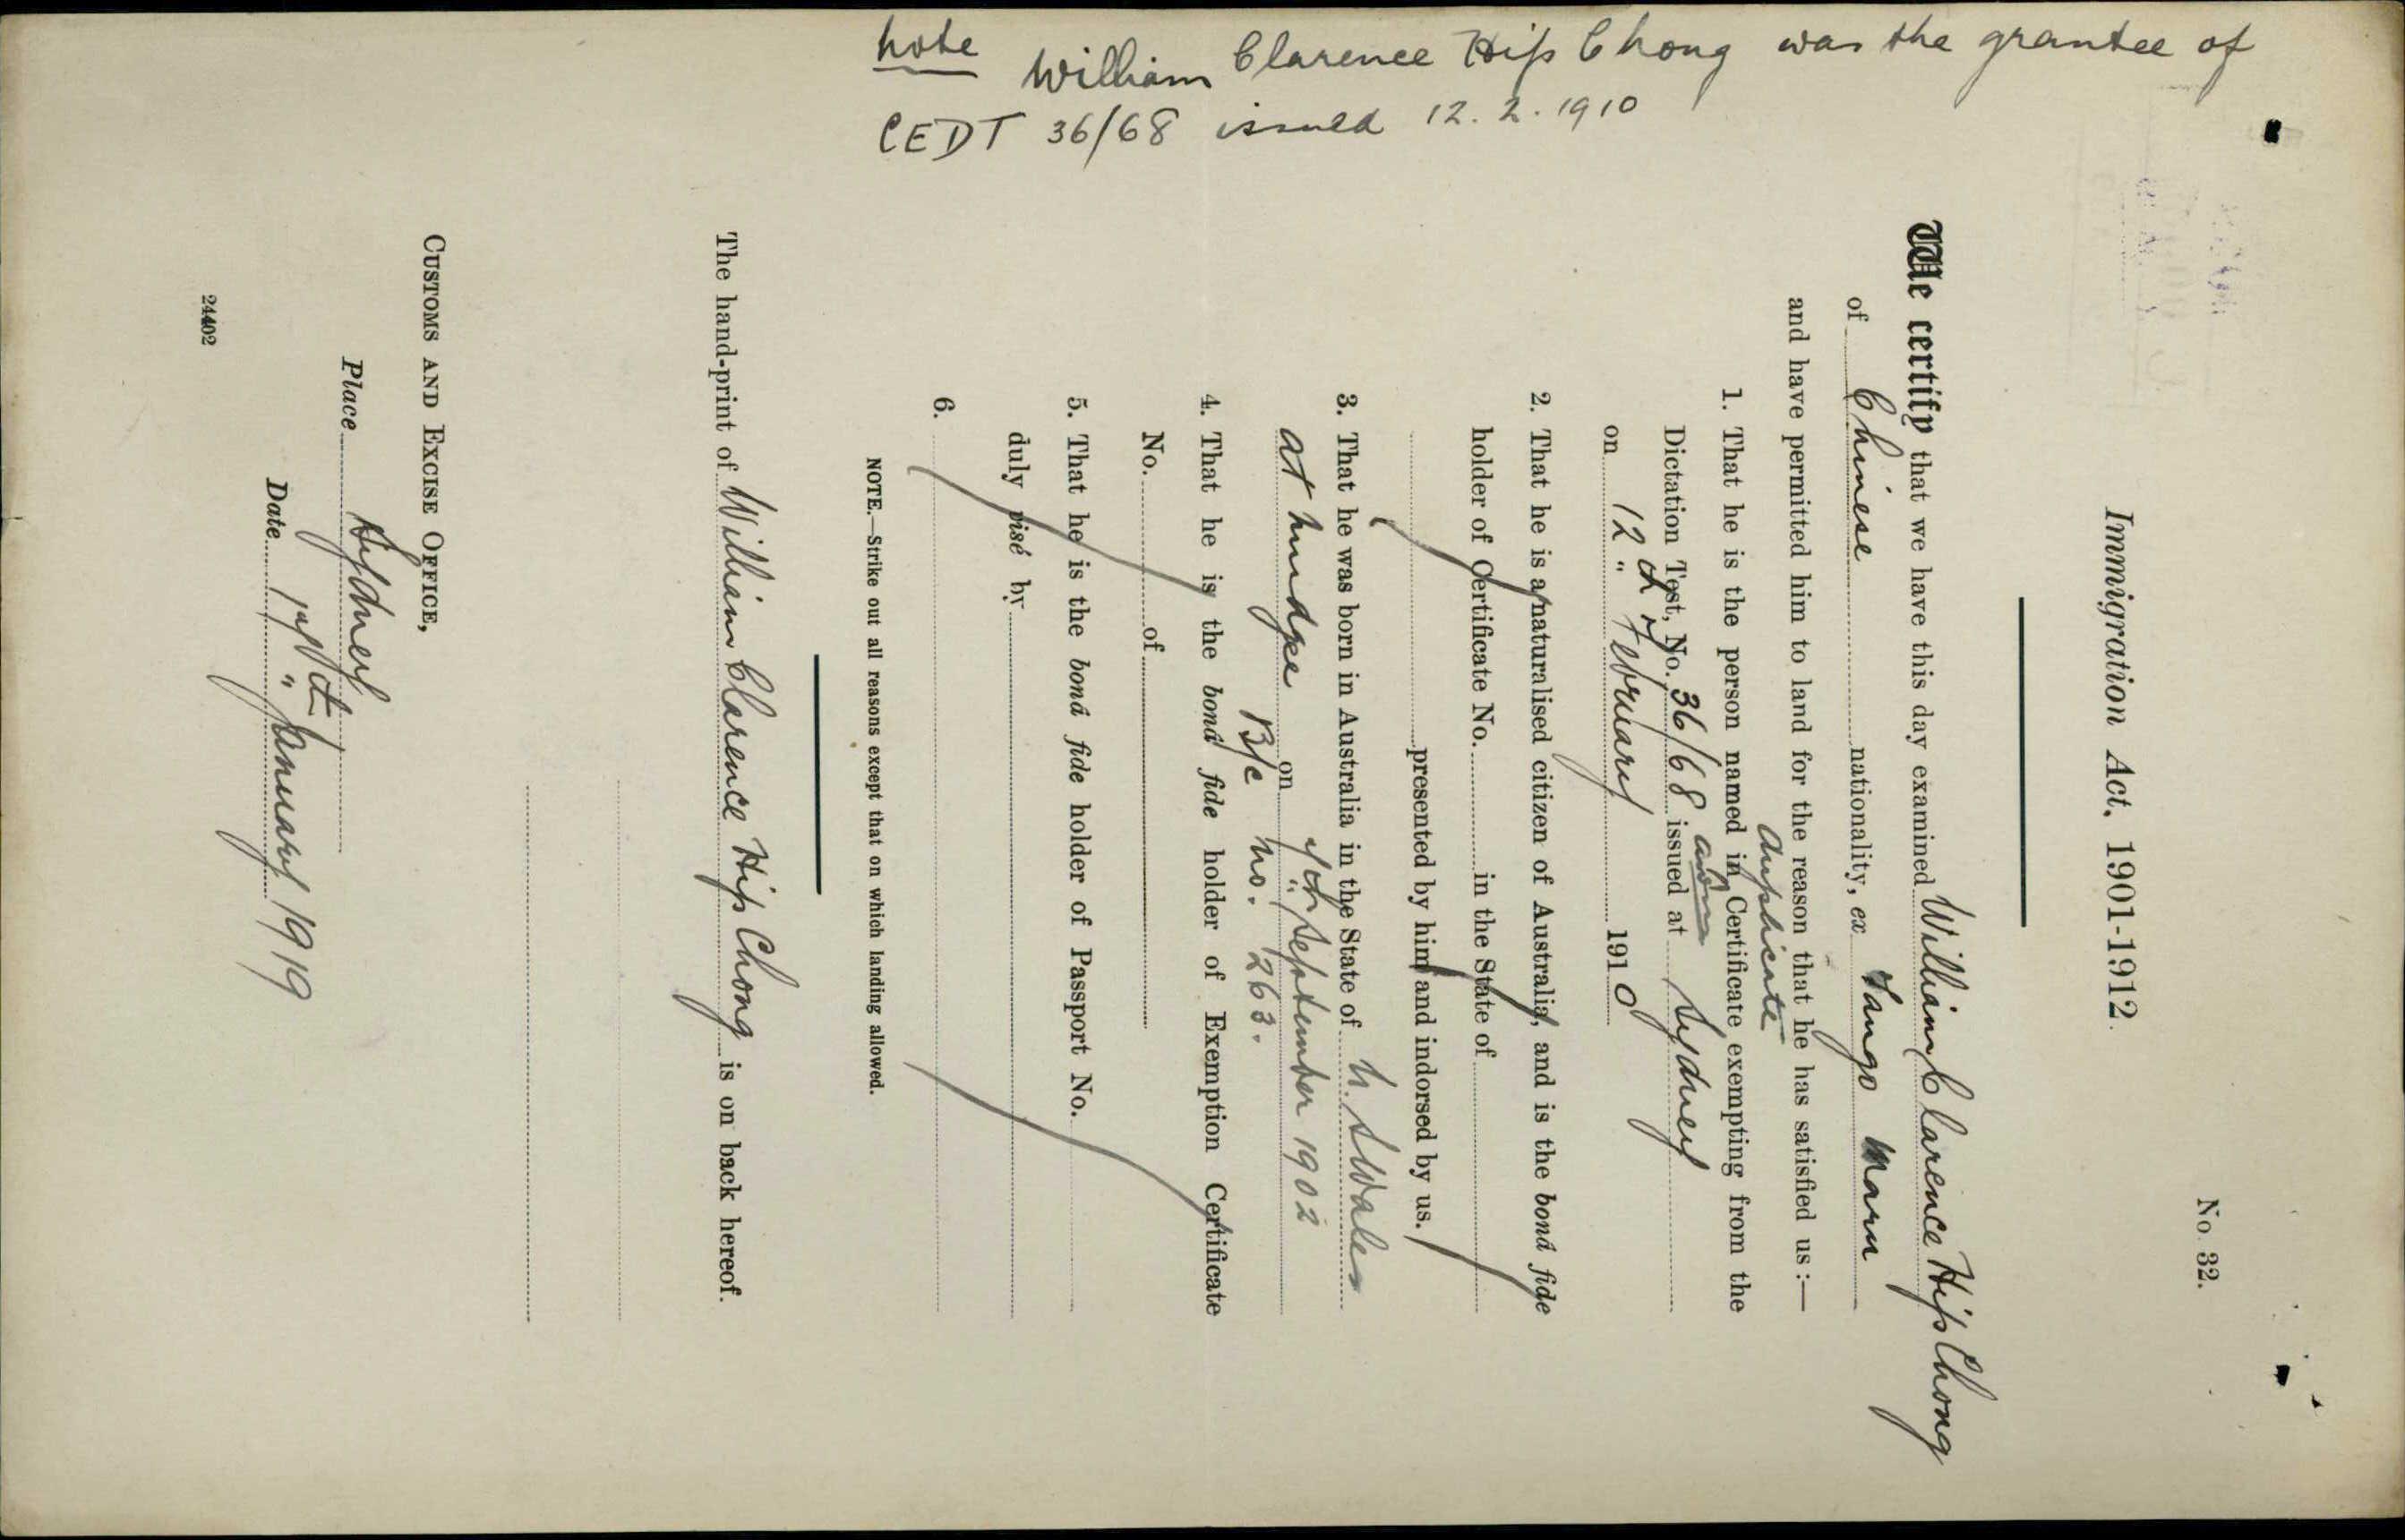 Note William Clarence Hip Chong was the grantee of
CEDT 36/68 issued 12.2.1910
No 32.
Immigration Act. 1901-1912.
We certify that we have this day examined William Clarence Hip Chong
of Chinese nationality, ex Tango Maru
and have permitted him to land for the reason that he has satisfied us :—
duplicate
1. That he is the person named in Certificate exempting from the
Dictation Test, No. 36/68 issued at Sydney
on 12th February 1910
2. That he is a naturalised citizen of Australia, and is the bonâ fide
holder of Certificate No. in the State of
presented by him and indorsed by us.
3. That he was born in Australia in the State of N. S Wales
at Mudgee on 4th September 1902
B/c No. 263.
4. That he is the bonâ fide holder of Exemption Certificate
No. of
5. That he is the bonâ fide holder of Passport No.
duly visé by
6.
NOTE.—Strike out all reasons except that on which landing allowed.
The hand-print of William Clarence Hip Chong is on back hereof.
CUSTOMS AND EXCISE OFFICE,
Place Sydney
Date January 1919
24402